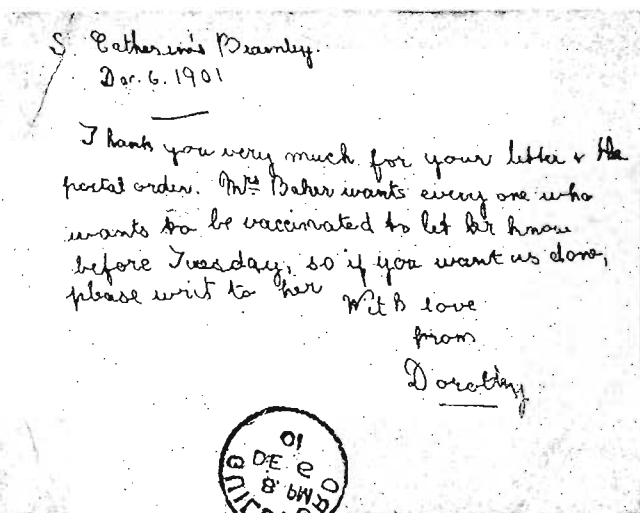 S. Catherine's Bramley.
Dec. 6. 1901
Thank you very much for your letter & the
postal order. Mrs Baker wants every one who
wants to be vaccinated to let her know
before Tuesday, so if you want us done,
please writ to her
With love
from
Dorothy
GUILDFORD
8 PM
DE 6
01